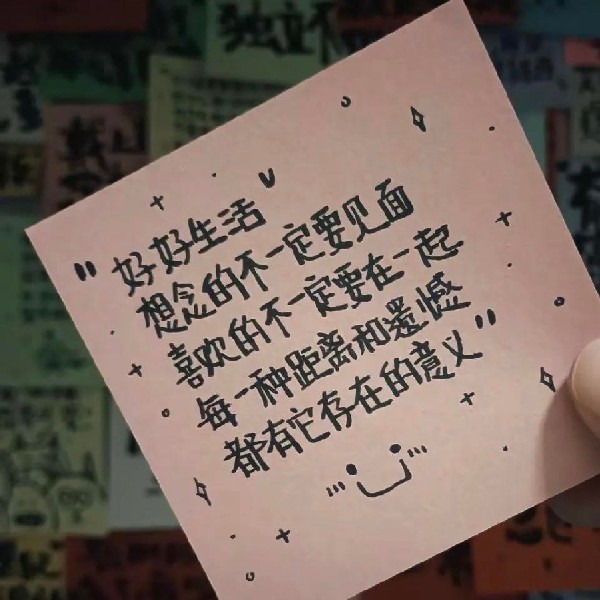 独立不
"好好生活
想念的不一定要见面
喜欢的不一定要在一起
每一种距离和遗憾
都有它存在的意义"